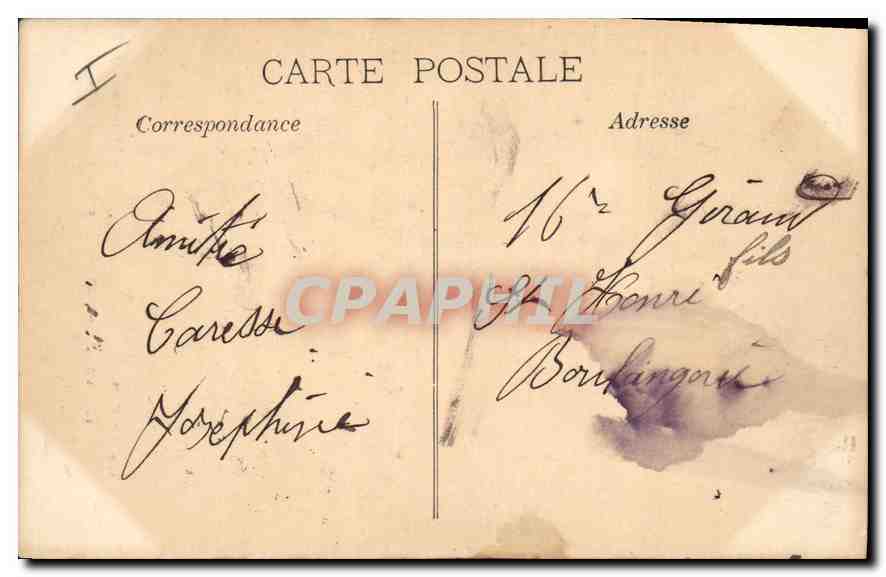 I
CARTE POSTALE
Correspondance
Adresse
Amitié
Caresse
Joséphine
Giraud
fils
St Henri
Boulangerie
CPAPHIL